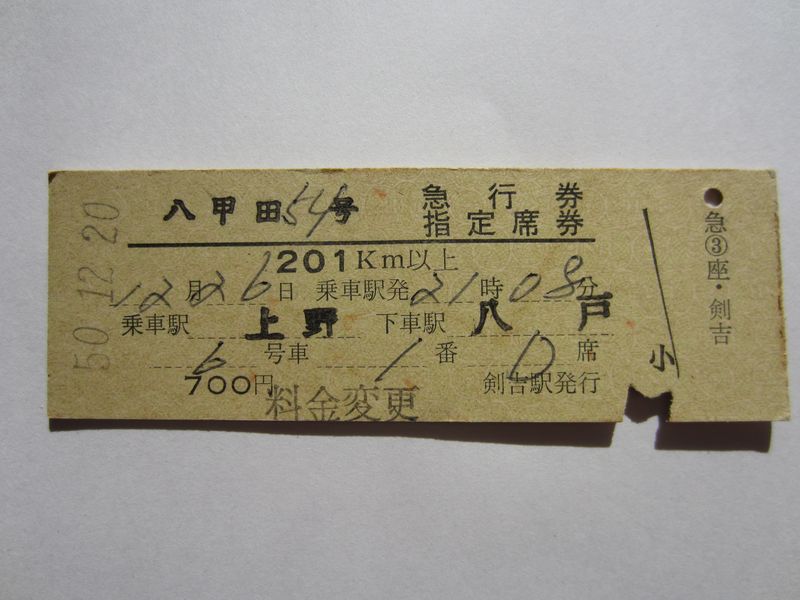 50.12.20
八甲田54号 急行券
指定席券
201Km以上
12月26日 乗車駅発21時08分
乗車駅 上野 下車駅 八戸
6号車 1番 D席
700円 料金変更 剣吉駅発行
小
急③座・剣吉